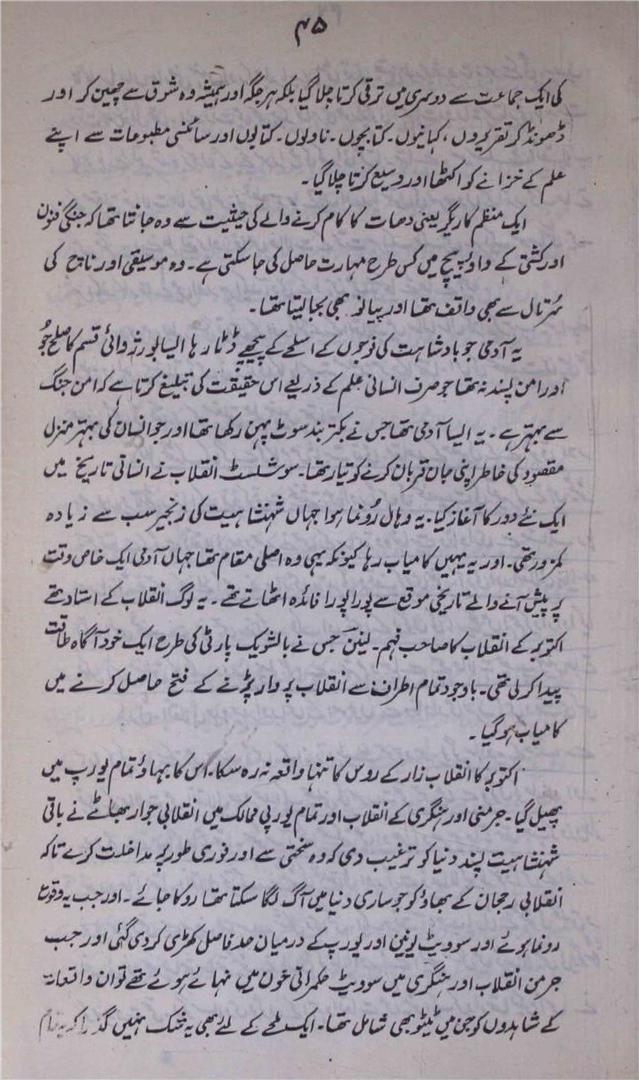 ۴۵
کی ایک جماعت سے دوسری میں ترقی کرتا چلا گیا بلکہ ہر جگہ اور ہمیشہ وہ شوق سے چھین کر اور
ڈھونڈ کر تقریروں، کہانیوں۔ کتابچوں۔ ناولوں۔ کتابوں اور سائنسی مطبوعات سے اپنے
علم کے خزانے کو اکٹھا اور وسیع کرتا چلا گیا۔
ایک منظم کاریگر یعنی دھات کا کام کرنے والے کی حیثیت سے وہ جانتا تھا کہ جنگی فنون
اور کشتی کے داؤ پیچ میں کس طرح مہارت حاصل کی جا سکتی ہے۔ وہ موسیقی اور ناچ کی
سُر تال سے بھی واقف تھا اور پیانو بھی بجا لیتا تھا۔
یہ آدمی جو بادشاہت کی فوجوں کے اسلحے کے پیچھے ڈٹا رہا ایسا بورژوائی قسم کا صلح جُو
اور امن پسند نہ تھا جو صرف انسانی علم کے ذریعے اس حقیقت کی تبلیغ کرتا ہے کہ امن جنگ
سے بہتر ہے۔ یہ ایسا آدمی تھا جس نے بکتر بند سوٹ پہن رکھا تھا اور جو انسان کی بہتر منزل
مقصود کی خاطر اپنی جان قربان کرنے کو تیار تھا۔ سوشلسٹ انقلاب نے انسانی تاریخ میں
ایک نئے دور کا آغاز کیا۔ یہ وہاں رُونما ہوا جہاں شہنشاہیت کی زنجیر سب سے زیادہ
کمزور تھی۔ اور یہ یہیں کامیاب رہا کیونکہ یہی وہ اصلی مقام تھا جہاں آدمی ایک خاص وقت
پر پیش آنے والے تاریخی موقع سے پورا پورا فائدہ اٹھاتے تھے۔ یہ لوگ انقلاب کے استاد تھے
اکتوبر کے انقلاب کا صاحب فہم۔ لینن جس نے بالشویک پارٹی کی طرح ایک خود آگاہ طاقت
پیدا کر لی تھی۔ باوجود تمام اطراف سے انقلاب پر وار پڑنے کے فتح حاصل کرنے میں
کامیاب ہو گیا۔
اکتوبر کا انقلاب زار کے روس کا تنہا واقعہ نہ رہ سکا۔ اس کا بہاؤ تمام یورپ میں
پھیل گیا۔ جرمنی اور ہنگری کے انقلاب اور تمام یورپی ممالک میں انقلابی جوار بھاٹے نے باقی
شہنشاہیت پسند دنیا کو ترغیب دی کہ وہ سختی سے اور فوری طور پر مداخلت کرے تاکہ
انقلابی رجحان کے بھاؤ کو جو ساری دنیا میں آگ لگا سکتا تھا روکا جائے۔ اور جب یہ وقوع
رونما ہوئے اور سوویٹ یونین اور یورپ کے درمیان حد فاصل کھڑی کر دی گئی اور جب
جرمن انقلاب اور ہنگری میں سوویٹ حکمرانی خون میں نہائے ہوئے تھے تو ان واقعات
کے شاہدوں کو جن میں ٹیٹو بھی شامل تھا۔ ایک لمحے کے لئے بھی یہ شک نہیں گذرا کہ یہ